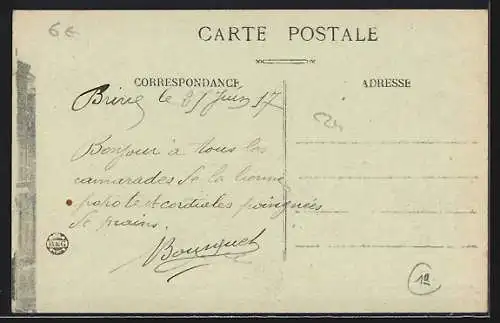 6€
CARTE POSTALE
CORRESPONDANCE
ADRESSE
Brive le 21 Juin 17
Bonjour à tous les
camarades de la bonne
popote et cordiales poignées
de mains.
Bousquet
1a